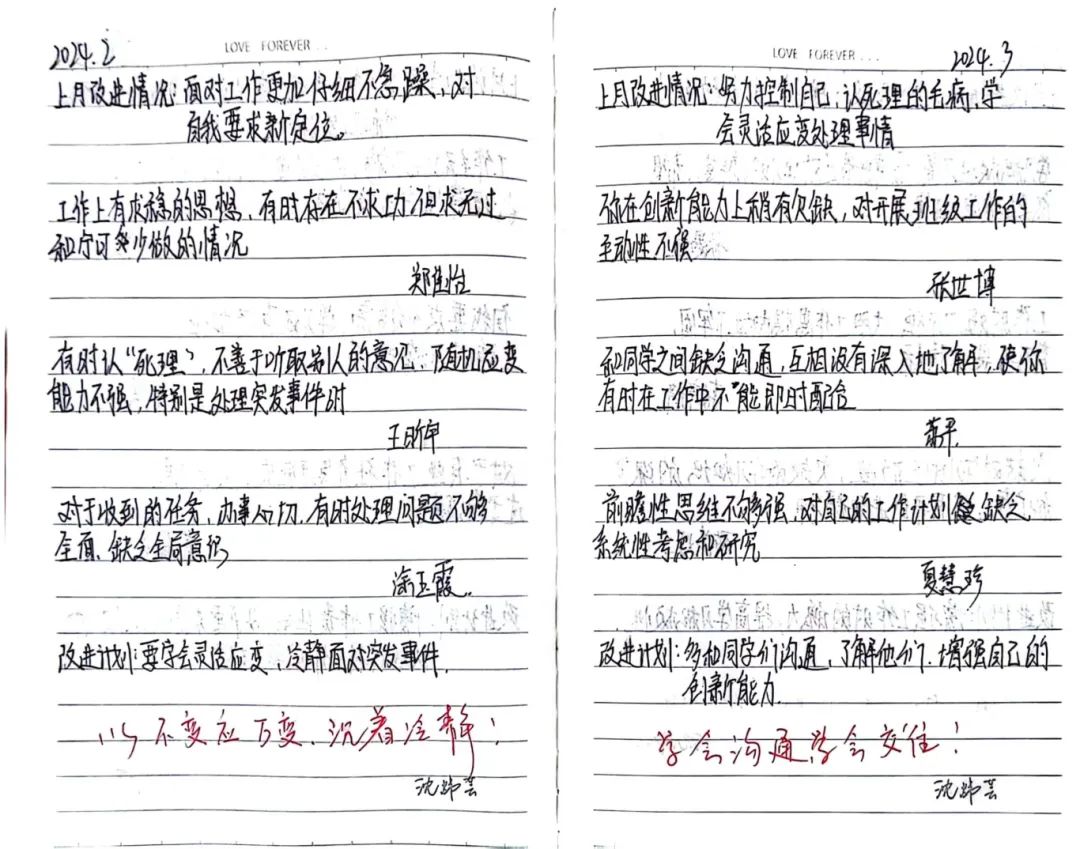 2024.2
LOVE FOREVER...
上月改进情况:面对工作更加仔细不急躁,对
自我要求新定位。
工作上有求稳的思想,有时存在不求功但求无过
和宁可少做的情况
郑佳怡
有时认“死理”,不善于听取别人的意见,随机应变
能力不强,特别是处理突发事件时
王昕
对于收到的任务,办事心切,有时处理问题不够
全面、缺乏全局意识
涂玉霞
改进计划:要学会灵活应变,冷静面对突发事件.
以不变应万变、沉着冷静!
沈
LOVE FOREVER...
2024.3
上月改进情况:努力控制自己,认死理的毛病,学
会灵活应变处理事情
你在创新能力上稍有欠缺,对开展班级工作的
主动性不强
张世博
和同学之间缺乏沟通,互相没有深入地了解,使你
有时在工作中不能即时配合
前瞻性思维不够强,对自己的工作计划缺乏
系统性考虑和研究
夏慧珍
改进计划:多和同学们沟通,了解他们.增强自己的
创新能力.
学会沟通学会交往!
沈